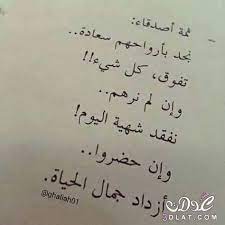 ثمة أصدقاء:
نجد بأرواحهم سعادة..
تفوق، كل شيء!!
وإن لم نرهم..
نفقد شهية اليوم!
وإن حضروا..
أزداد جمال الحياة.
@ghaliah01
عدلات
3DLAT.COM